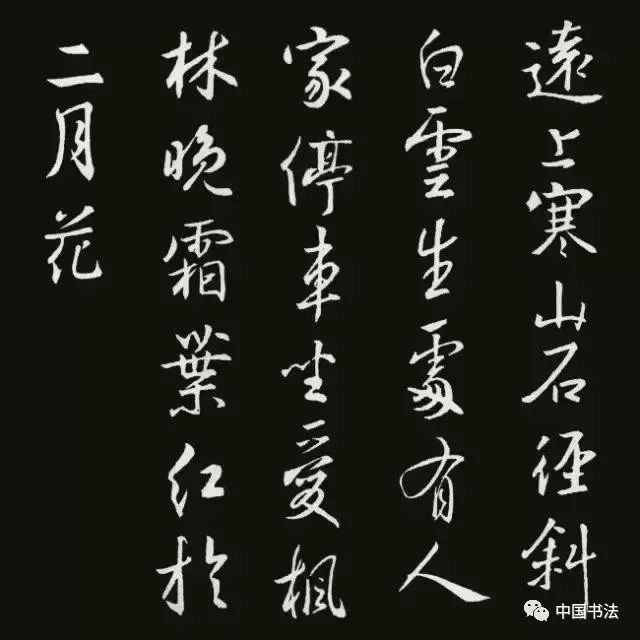 遠上寒山石徑斜
白雲生處有人
家停車坐愛楓
林晚霜葉紅於
二月花
中国书法